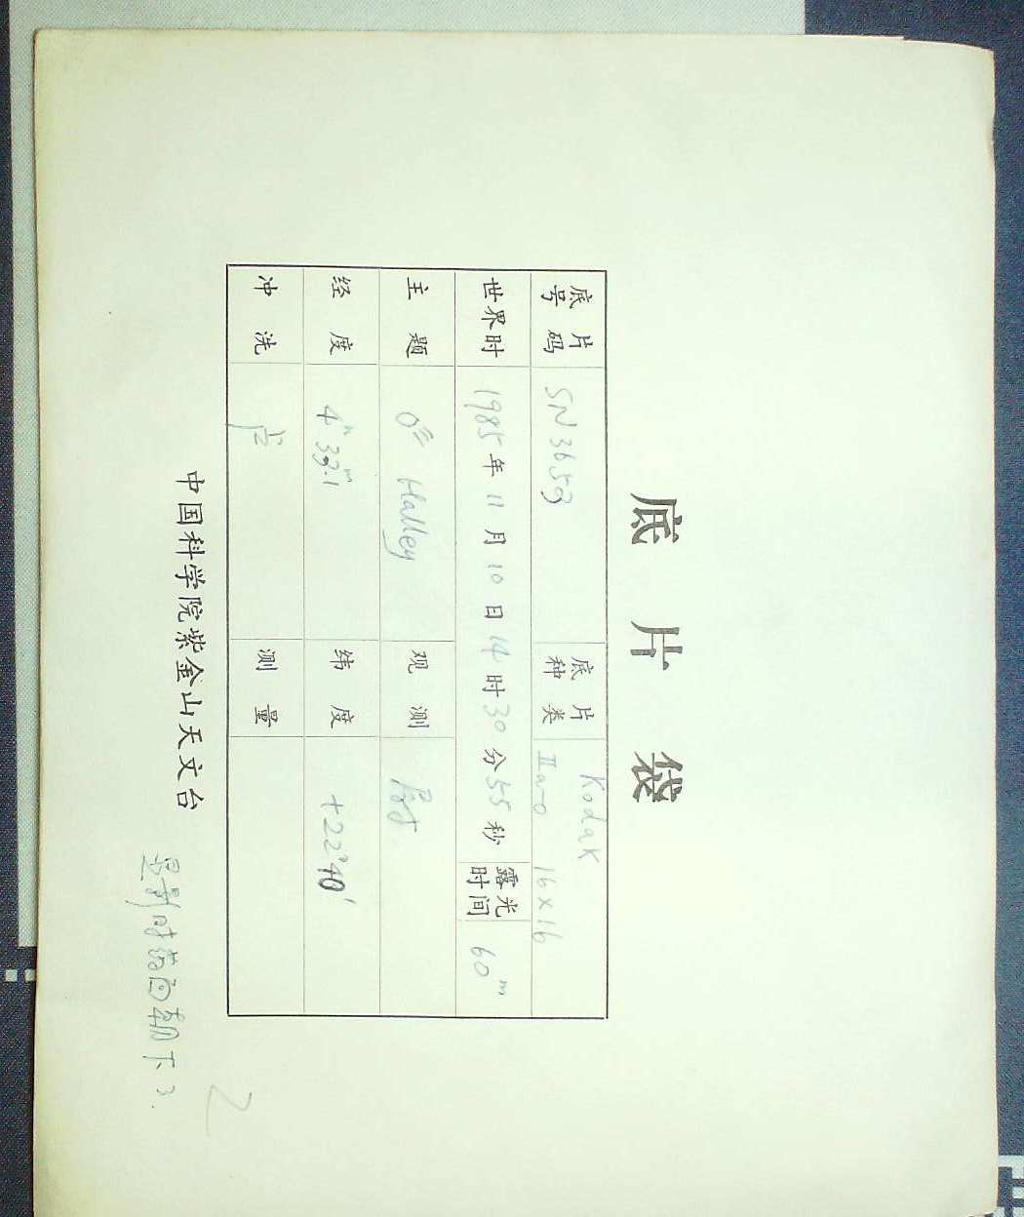 底片袋
底片号码 SN3653 底片种类 Kodak IIa-O 16×16
世界时 1985年11月10日14时30分55秒 露光时间 60m
主题 Halley 观测
经度 4h33m.1 纬度 +22°40′
冲洗 卢 测量
中国科学院紫金山天文台
显影时药面朝下了.
2